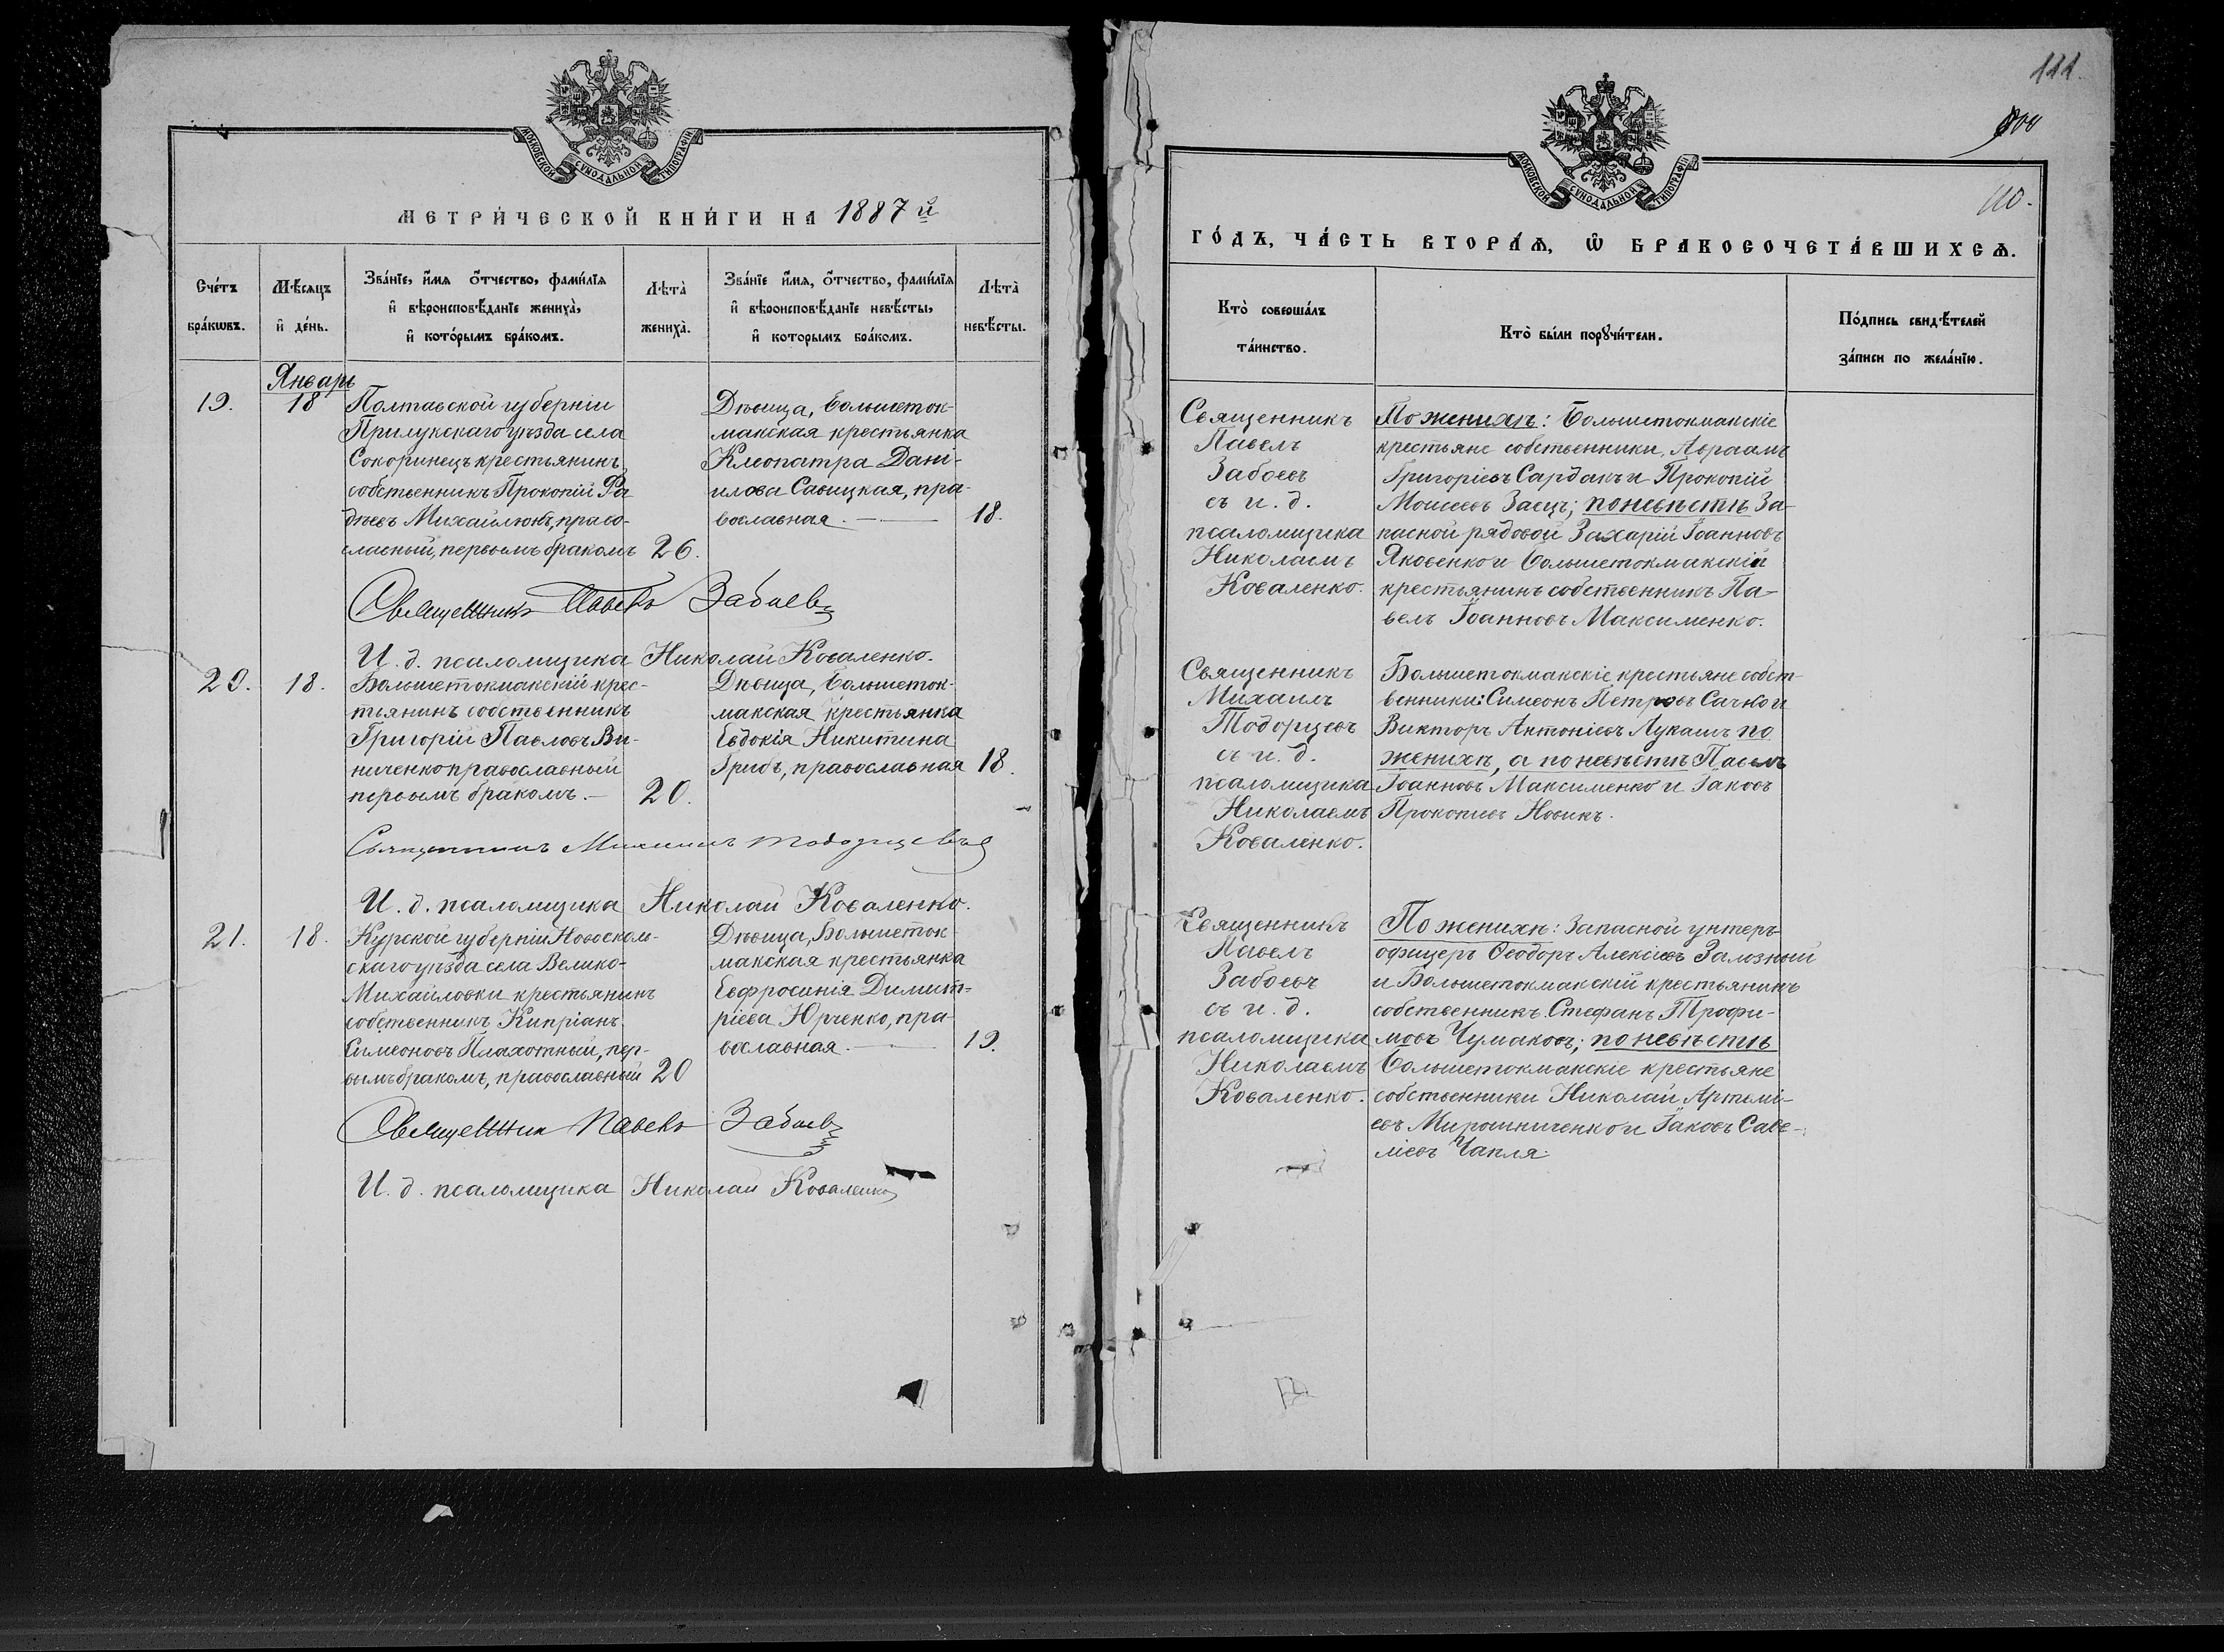 МОСКОВСКОЙ СѴНОДАЛЬНОЙ ТИПОГРАФІИ
МЕТРИ́ЧЕСКОЙ КНИ́ГИ НА 1887й
Сче́тъ бра́кωвъ.
Мѣ́сяцъ и҆ де́нь.
Зва́нїе, и҆́мя ѻ҆́тчество, фами́лїя
и҆ вѣроисповѣ́данїе жениха̀,
и҆ кото́рымъ бра́комъ.
Лѣта̀ жениха̀.
Зва́нїе и҆́мя, ѻ҆́тчество, фами́лїя
и҆ вѣроисповѣ́данїе невѣ́сты,
и҆ которымъ бра́комъ.
Лѣта̀ невѣ́сты.
Январь
19.
18
Полтавской губерніи
Прилукскаго уѣзда села
Сокоринецъ крестьянинъ
собственникъ Прокопій Фа
дѣевъ Михайлюкъ, право-
славный, первымъ бракомъ
26.
Дѣвица, большеток-
макская крестьянка
Клеопатра Дані-
илова Савицкая, пра-
вославная.
18.
Священникъ Павелъ Забоевъ
И. д. псаломщика Николай Коваленко.
20.
18.
Большетокмакскій крес-
тьянинъ собственникъ
Григорій Павловъ Ви-
ниченко православный
первымъ бракомъ.
20.
Дѣвица, большеток-
макская крестьянка
Евдокія Никитина
Грибъ, православная
18.
Священникъ Михаилъ Тодорцевъ
И. д. псаломщика Николай Коваленко.
21.
18.
Курской губерніи Новоскол-
скаго уѣзда села Велико-
Михайловки крестьянинъ
собственникъ Кипріанъ
Симеоновъ Плахотный, пер-
вымъ бракомъ, православный
20
Дѣвица, Большеток-
макская крестьянка
Евфросинія Димит-
ріева Юрченко, пра-
вославная.
19.
Священник Павелъ Забоевъ
И. д. псаломщика Николай Коваленко
111.
110.
МОСКОВСКОЙ СѴНОДАЛЬНОЙ ТИПОГРАФІИ
ГО́ДЪ, ЧА́СТЬ ВТОРА́Я, Ѡ҆ БРАКОСОЧЕТА́ВШИХСЯ.
Кто̀ соверша́лъ
та́инство.
Кто̀ бы́ли порꙋчи́тели.
По́дпись свидѣ́телей
за́писи по жела́нїю.
Священникъ
Павелъ
Забоевъ
съ и. д.
псаломщика
Николаемъ
Коваленко.
По женихѣ: Большетокмакскіе
крестьяне собственники, Авраамъ
Григоріевъ Сардакъ и Прокопій
Моисеевъ Заецъ; по невѣстѣ За-
пасной рядовой Захарій Іоанновъ
Яковенко и большетокмакскій
крестьянинъ собственникъ Па-
велъ Іоанновъ Максименко.
Священникъ
Михаилъ
Тодорцевъ
съ и. д.
псаломщика
Николаемъ
Коваленко.
Большетокмакскіе крестьяне собст-
венники: Симеонъ Петровъ Сачко и
Викторъ Антоніевъ Лукашъ по
женихѣ, а по невѣстѣ Павелъ
Іоанновъ Максименко и Іаковъ
Прокопіевъ Новикъ.
Священникъ
Павелъ
Забоевъ
съ и. д.
псаломщика
Николаемъ
Коваленко.
По женихѣ: Запасной унтеръ-
офицеръ Ѳеодоръ Алексіевъ Залозный
и Большетокмакскій крестьянинъ
собственникъ Стефанъ Трофи-
мовъ Чумаковъ; по невѣстѣ
большетокмакскіе крестьяне
собственники Николай Артемі-
евъ Мирошниченко и Іаковъ Саве-
ліевъ Чапля.